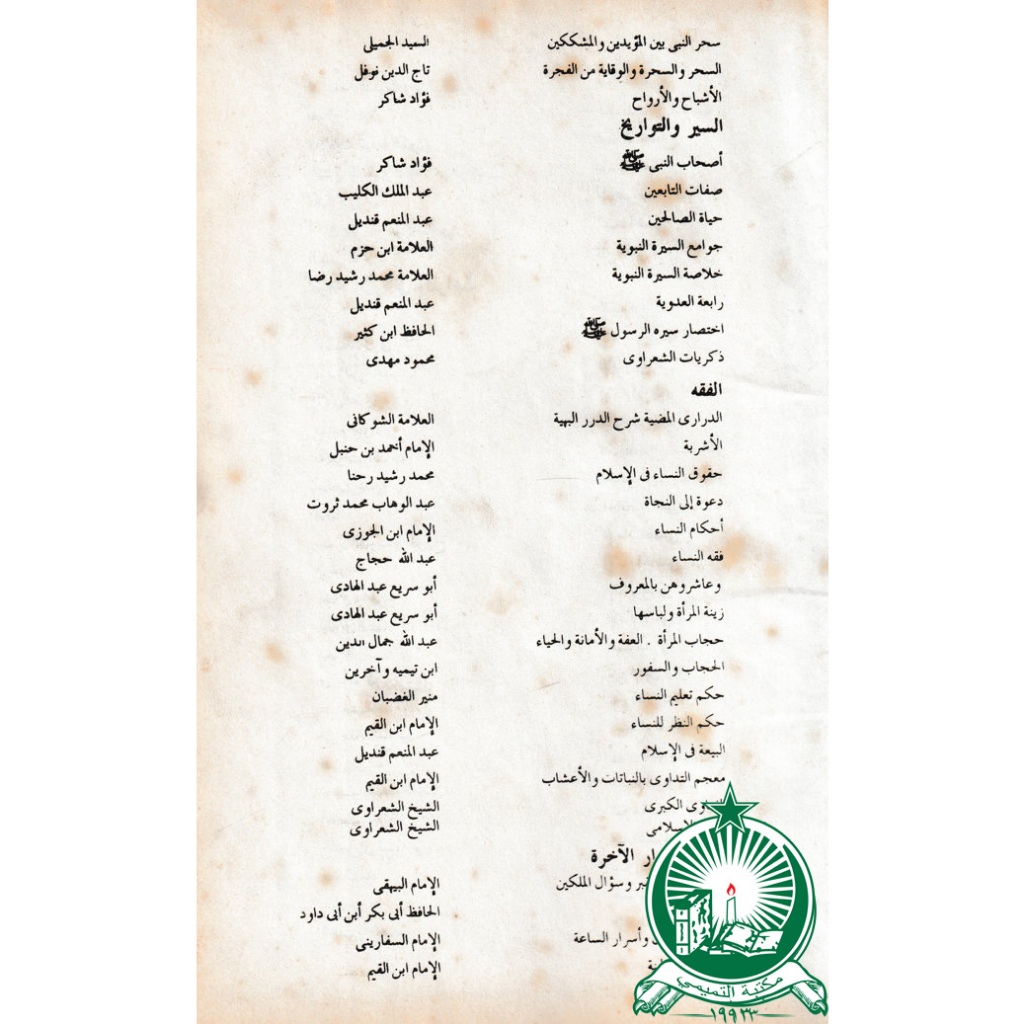 سحر النبى بين المؤيدين والمشككين السيد الجميلى
السحر والسحرة والوقاية من الفجرة تاج الدين نوفل
الأشباح والأرواح فؤاد شاكر
السير والتواريخ
أصحاب النبى ﷺ فؤاد شاكر
صفات التابعين عبد الملك الكليب
حياة الصالحين عبد المنعم قنديل
جوامع السيرة النبوية العلامة ابن حزم
خلاصة السيرة النبوية العلامة محمد رشيد رضا
رابعة العدوية عبد المنعم قنديل
اختصار سيره الرسول ﷺ الحافظ ابن كثير
ذكريات الشعراوى محمود مهدى
الفقه
الدرارى المضية شرح الدرر البهية العلامة الشوكانى
الأشربة الإمام أحمد بن حنبل
حقوق النساء فى الإسلام محمد رشيد رحنا
دعوة إلى النجاة عبد الوهاب محمد ثروت
أحكام النساء الإمام ابن الجوزى
فقه النساء عبد الله حجاج
وعاشروهن بالمعروف أبو سريع عبد الهادى
زينة المرأة ولباسها أبو سريع عبد الهادى
حجاب المرأة . العفة والأمانة والحياء عبد الله جمال الدين
الحجاب والسفور ابن تيميه وآخرين
حكم تعليم النساء منير الغضبان
حكم النظر للنساء الإمام ابن القيم
البيعة فى الإسلام عبد المنعم قنديل
معجم التداوى بالنباتات والأعشاب الإمام ابن القيم
الكبرى الشيخ الشعراوى
الشيخ الشعراوى
الآخرة
وسؤال الملكين الإمام البيهقى
الحافظ أبى بكر أبن أبى داود
وأسرار الساعة الإمام السفارينى
الإمام ابن القيم
مكتبة التميمي
١٩٩٣٣